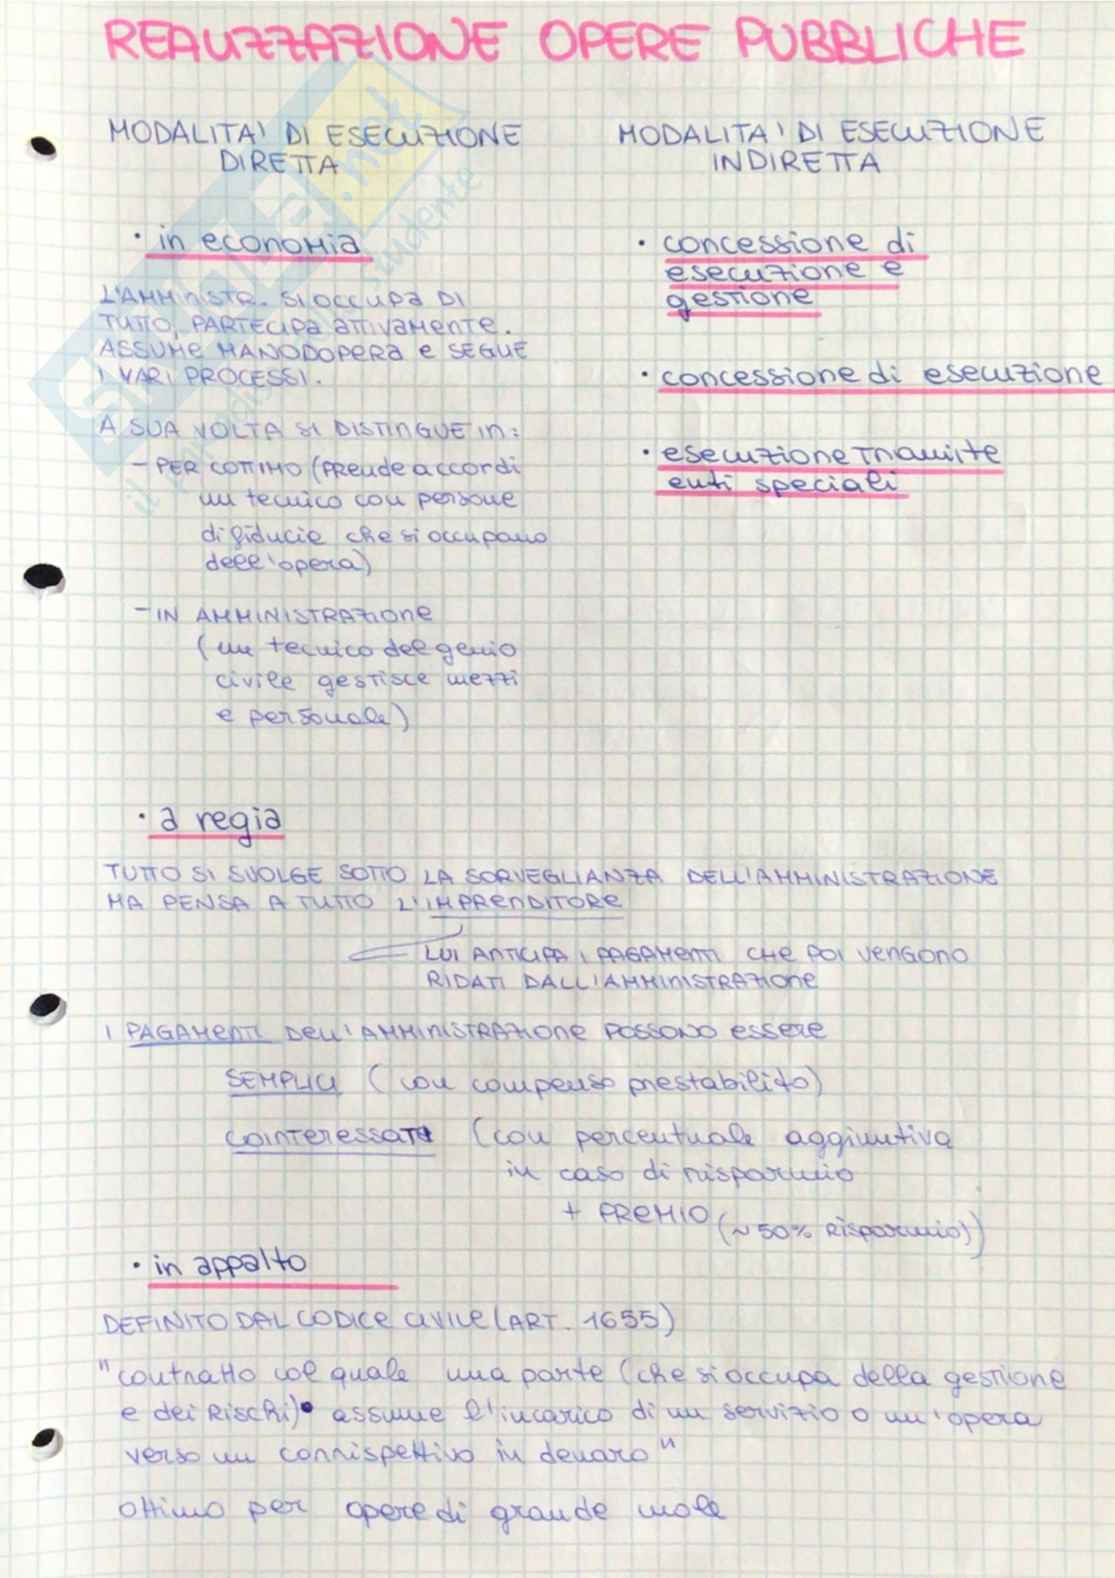 REALIZZAZIONE OPERE PUBBLICHE
MODALITA' DI ESECUZIONE
DIRETTA
· in economia
L'AMMINISTR. SI OCCUPA DI
TUTTO, PARTECIPA ATTIVAMENTE.
ASSUME MANODOPERA E SEGUE
I VARI PROCESSI.
A SUA VOLTA SI DISTINGUE IN:
- PER COTTIMO (PRENDE ACCORDI
un tecnico con persone
di fiducia che si occupano
dell'opera)
- IN AMMINISTRAZIONE
(un tecnico del genio
civile gestisce mezzi
e personale)
MODALITA' DI ESECUZIONE
INDIRETTA
· concessione di
esecuzione e
gestione
· concessione di esecuzione
· esecuzione tramite
enti speciali
· a regia
TUTTO SI SVOLGE SOTTO LA SORVEGLIANZA DELL'AMMINISTRAZIONE
MA PENSA A TUTTO L'IMPRENDITORE
LUI ANTICIPA I PAGAMENTI CHE POI VENGONO
RIDATI DALL'AMMINISTRAZIONE
I PAGAMENTI DELL'AMMINISTRAZIONE POSSONO ESSERE
SEMPLICI (con compenso prestabilito)
COINTERESSATI (con percentuale aggiuntiva
in caso di risparmio
+ PREMIO (~50% RISPARMIO))
· in appalto
DEFINITO DAL CODICE CIVILE (ART. 1655)
"contratto col quale una parte (che si occupa della gestione
e dei rischi) assume l'incarico di un servizio o un'opera
verso un corrispettivo in denaro"
ottimo per opere di grande mole